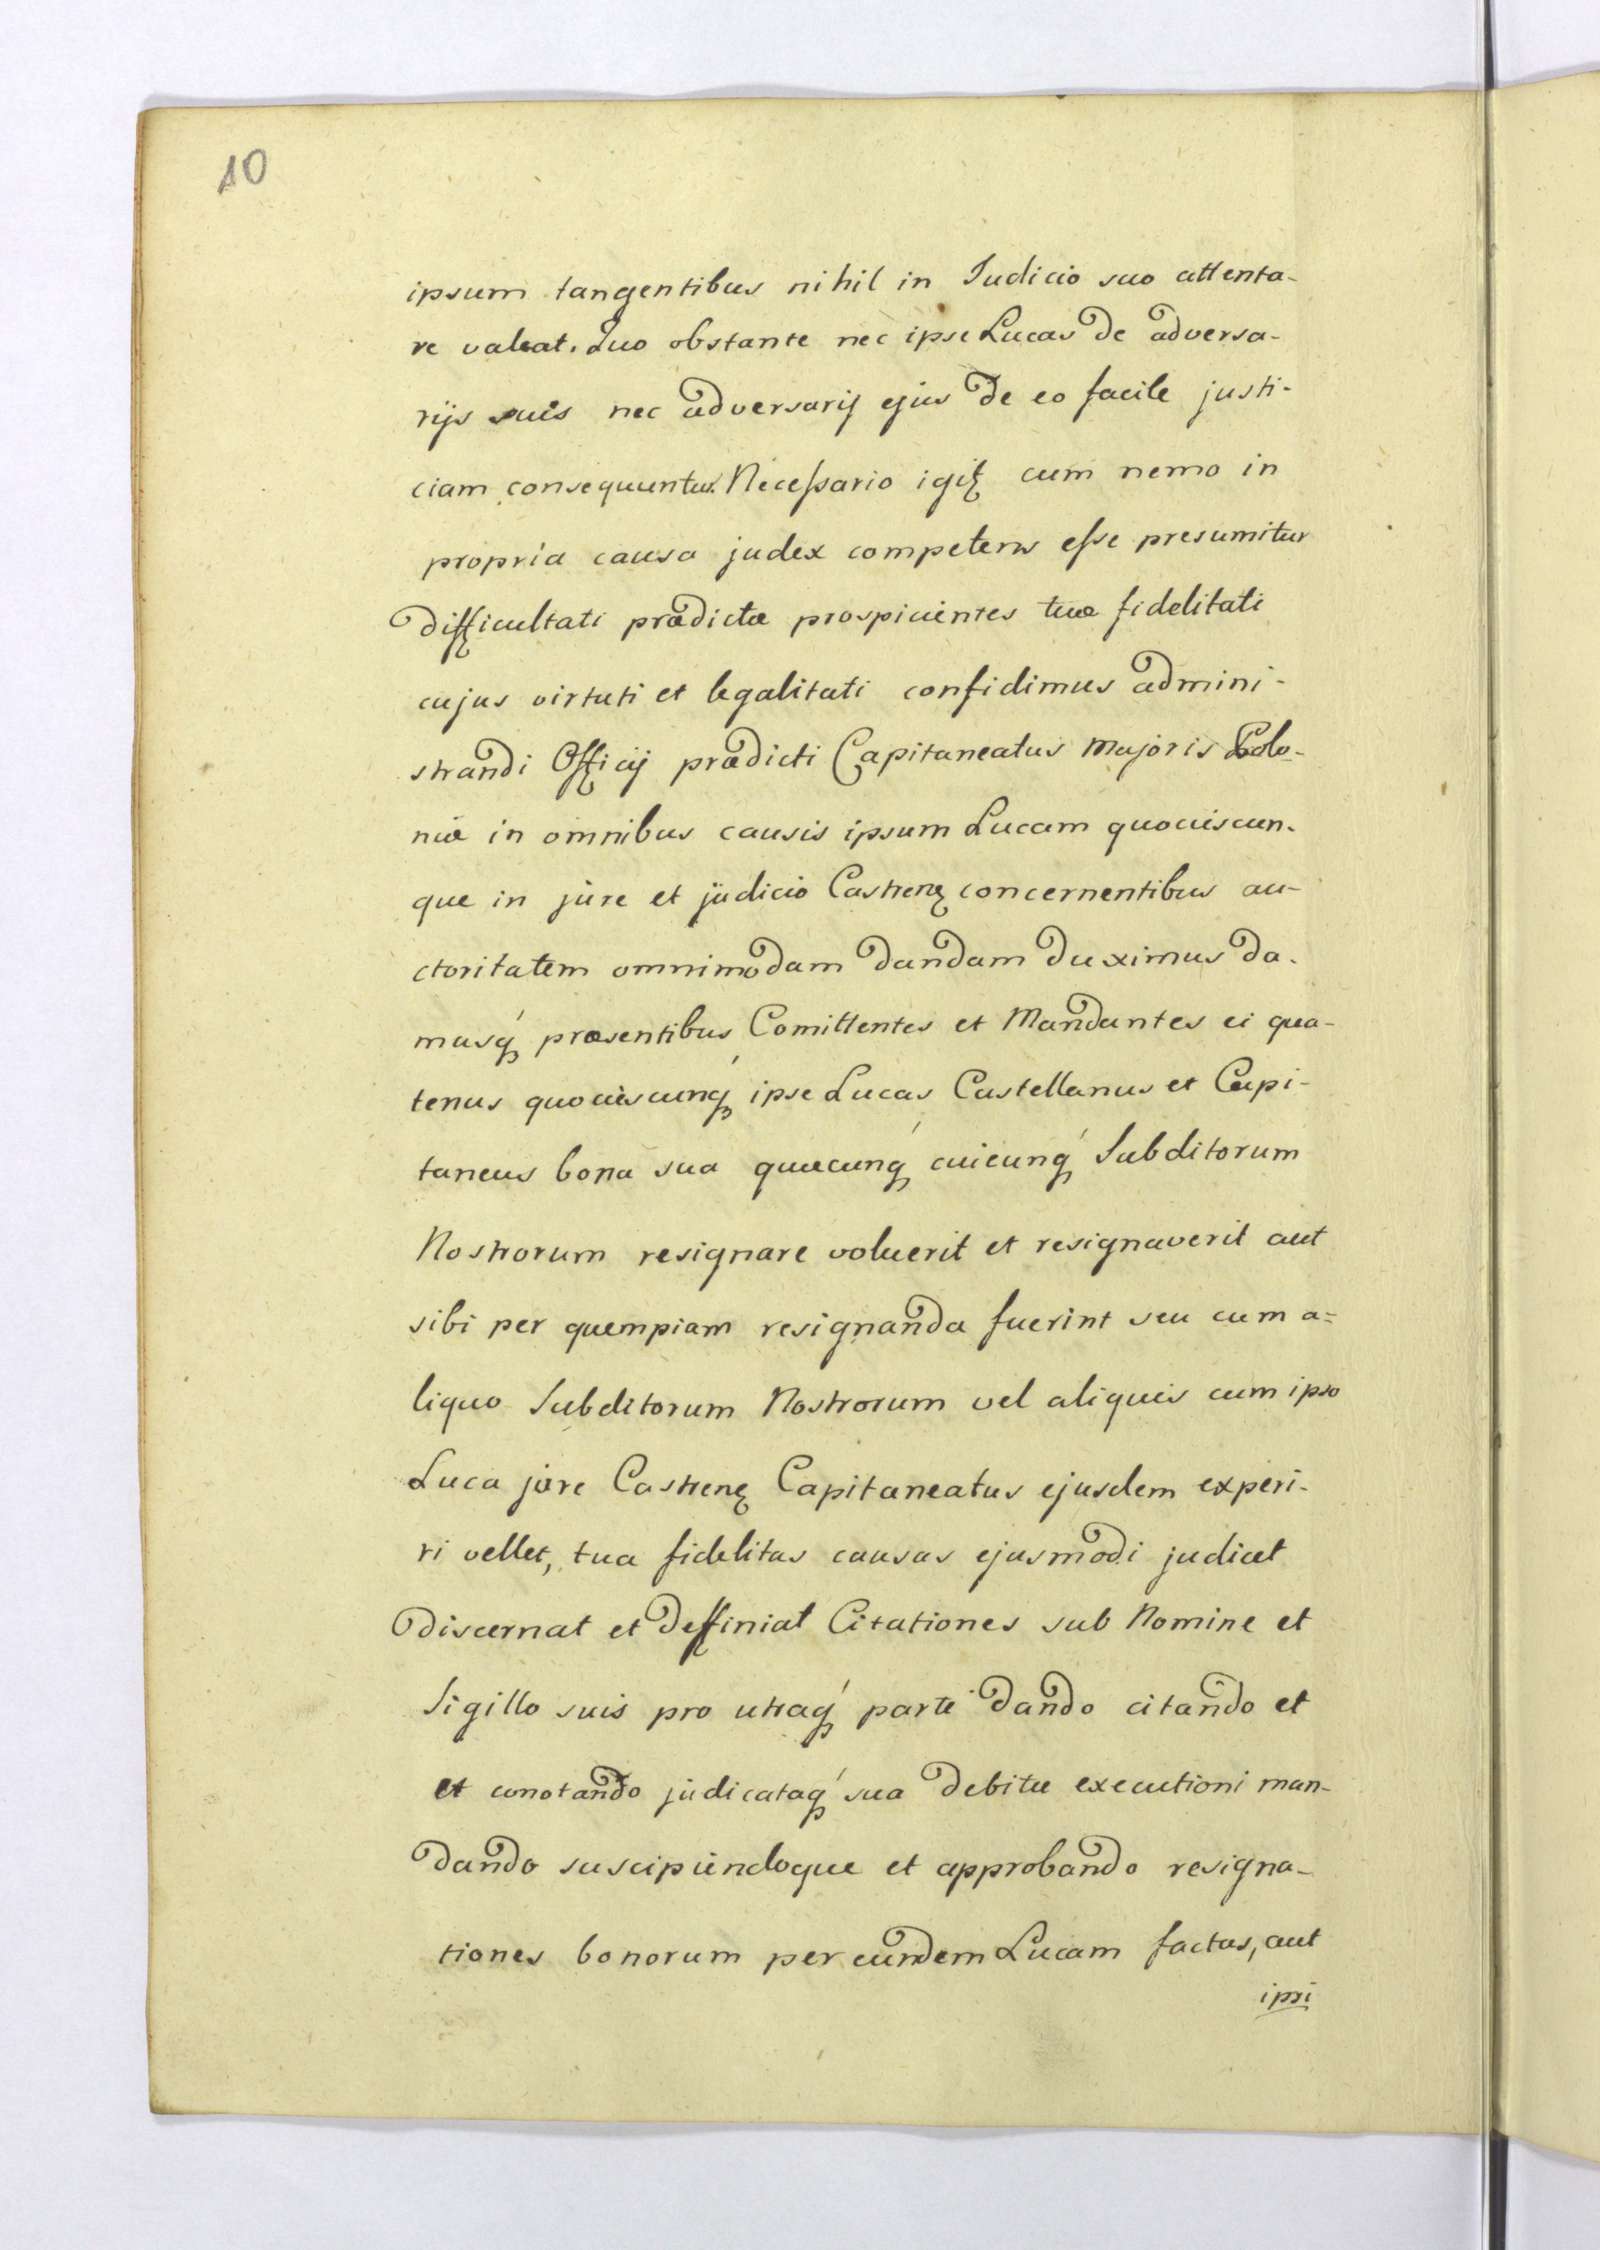 10
ipsum tangentibus nihil in Judicio suo attenta-
re valeat. Quo obstante nec ipse Lucas de adversa-
rijs suis nec adversarij ejus de eo facile justi-
ciam consequuntur. Necessario igitꝫ cum nemo in
propria causa judex competens esse presumitur
difficultati prædictæ prospicientes tuæ fidelitati
cujus virtuti et legalitati confidimus admini-
strandi Officij prædicti Capitaneatus Majoris Polo-
niæ in omnibus causis ipsum Lucam quociscun-
que in jure et judicio Castrenꝫ concernentibus au-
ctoritatem omnimodam dandam duximus da-
musqꝫ præsentibus Comittentes et Mandantes ei qua-
tenus quociescunqꝫ ipse Lucas Castellanus et Capi-
taneus bona sua quæcunqꝫ cuicunqꝫ Subditorum
Nostrorum resignare voluerit et resignaverit aut
sibi per quempiam resignanda fuerint seu cum a=
liquo Subditorum Nostrorum vel aliquis cum ipso
Luca jure Castrenꝫ Capitaneatus ejusdem experi-
ri vellet, tua fidelitas causas ejusmodi judicet
discernat et deffiniat Citationes sub Nomine et
Sigillo suis pro utraqꝫ parte dando citando et
et conotando judicataqꝫ sua debitæ executioni man-
dando suscipiendoque et approbando resigna-
tiones bonorum per eundem Lucam factas, aut
ipsi